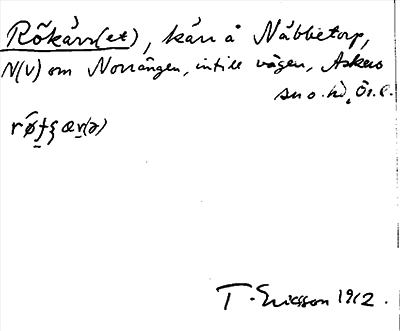 Rökärr(et), kärr å Näbbetorp,
N(V) om Norrängen, intill vägen, Askers
sn o. hd, Ör. l.
T. Ericsson 1912.